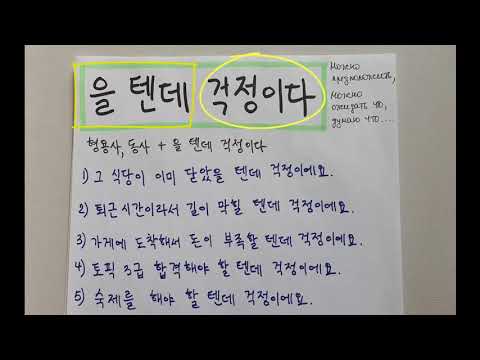 을 텐데 걱정이다
можно
предположить,
можно
ожидать что,
думаю что....
형용사, 동사 + 을 텐데 걱정이다
1) 그 식당이 이미 닫았을 텐데 걱정이에요.
2) 퇴근시간이라서 길이 막힐 텐데 걱정이에요.
3) 가게에 도착해서 돈이 부족할 텐데 걱정이에요.
4) 토픽 3급 합격해야 할 텐데 걱정이에요.
5) 숙제를 해야 할 텐데 걱정이에요.